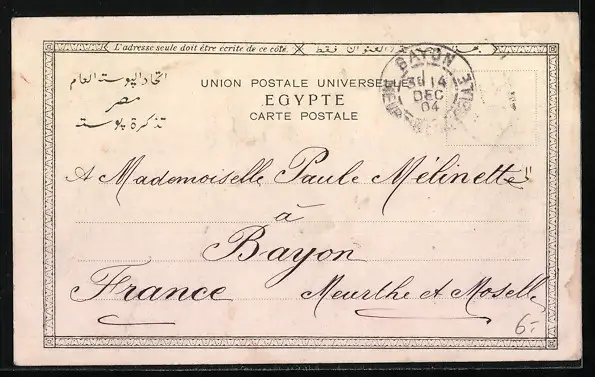 L'adresse seule doit être écrite de ce côté.
اتحاد البوسته العام
مصر
تذكرة بوسته
UNION POSTALE UNIVERSELLE
EGYPTE
CARTE POSTALE
BAYON
14
DEC
04
A Mademoiselle Paule Mélinette
à
Bayon
France Meurthe et Moselle
6.-